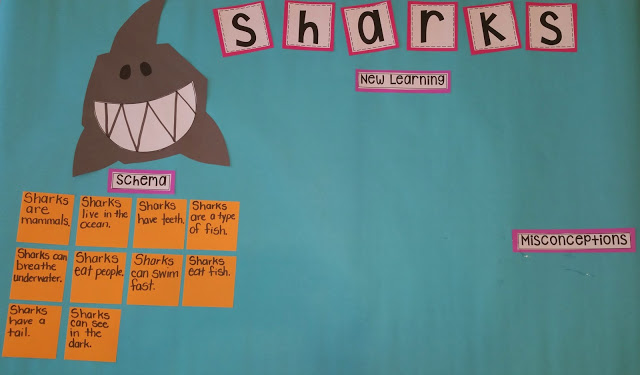 Sharks
New Learning
Schema
Sharks
are
mammals.
Sharks
live in the
ocean.
Sharks
have teeth.
Sharks
are a type
of fish.
Sharks can
breathe
underwater.
Sharks
eat people.
Sharks
can swim
fast.
Sharks
eat fish.
Sharks
have a
tail.
Sharks
can see
in the
dark.
Misconceptions